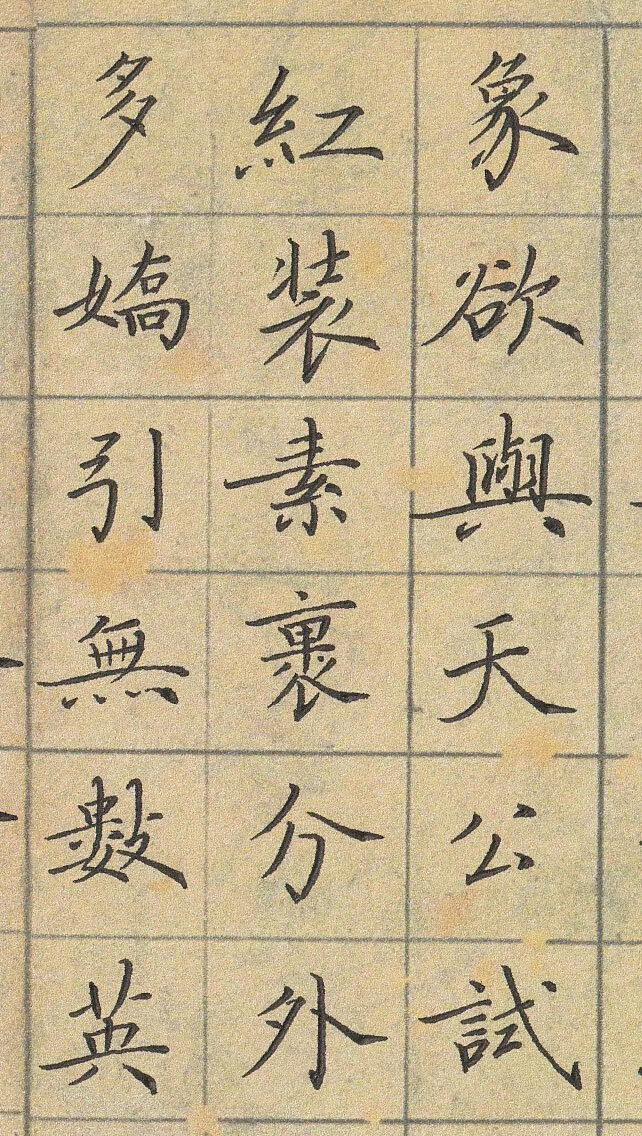 象欲與天公試
紅裝素裹分外
多嬌引無數英